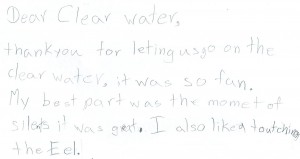 Dear Clear water,
thankyou for leting us go on the
clear water, it was so fun.
My best part was the momet of
silats it was geat. I also likea toutching
the Eel.